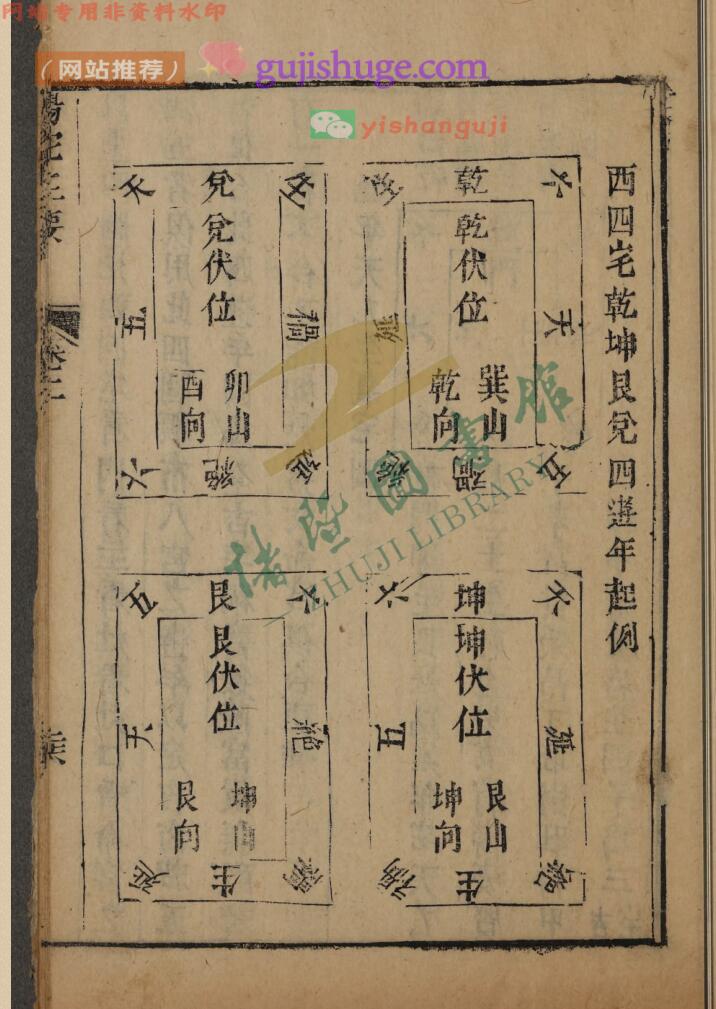 网站专用非资料水印
(网站推荐)
gujishuge.com
yishanguji
西四宅乾坤艮兌四遊年起例
乾
六
天
五
禍
絕
延
生
乾伏位
巽山
乾向
坤
天
延
絕
生
禍
五
六
坤伏位
艮山
坤向
兌
生
禍
延
絕
六
五
天
兌伏位
卯山
酉向
艮
六
絕
禍
生
延
天
五
艮伏位
坤山
艮向
陽宅三要
卷二
諸暨圖書館
ZHUJI LIBRARY